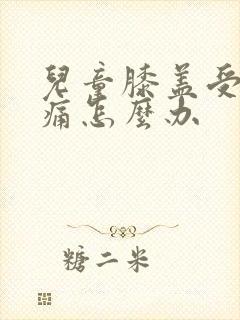 兒童膝盖受
痛怎麼办
糖二米